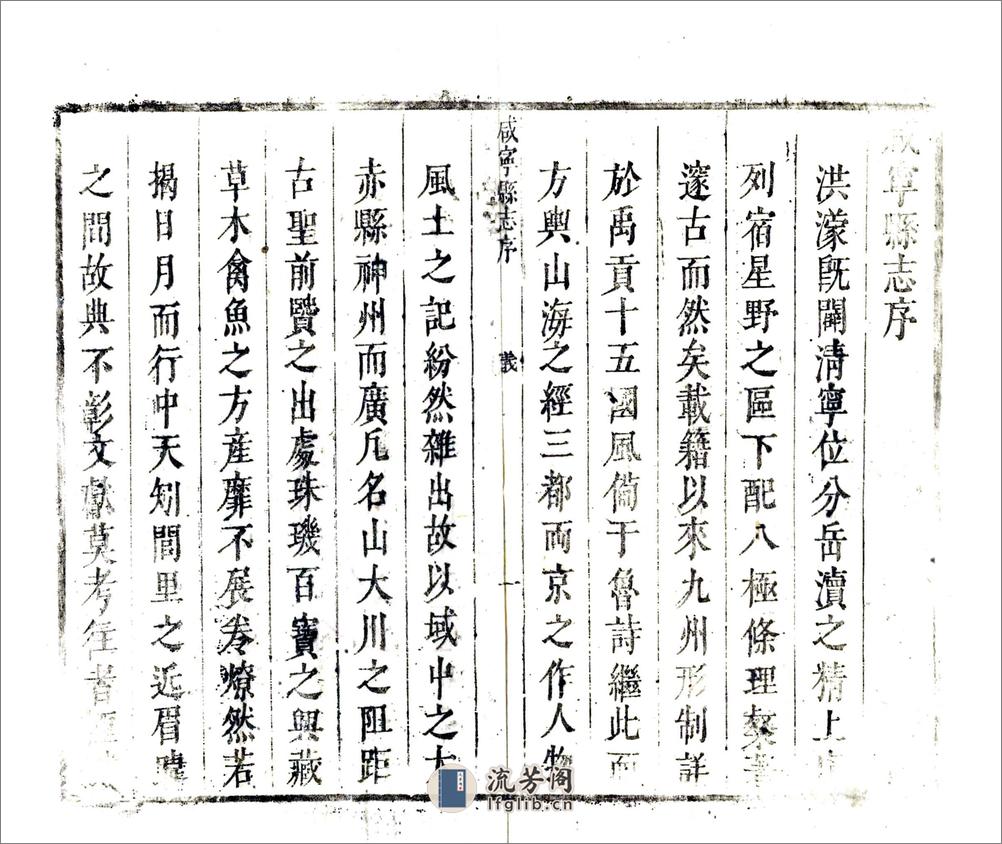 咸寧縣志序
洪濛既闢清寧位分岳瀆之精上
列宿星野之區下配八極條理粲著
邃古而然矣載籍以來九州形制詳
於禹貢十五國風備于魯詩繼此而
方輿山海之經三都兩京之作人物
咸寧縣志序 義 一
風土之記紛然雜出故以域中之大
赤縣神州而廣凡名山大川之阻距
古聖前賢之出處珠璣百寶之興藏
草木禽魚之方產靡不展卷燎然若
揭日月而行中天矧閭里之近眉睫
之間故典不彰文獻莫考往者
流芳阁
lfglib.cn